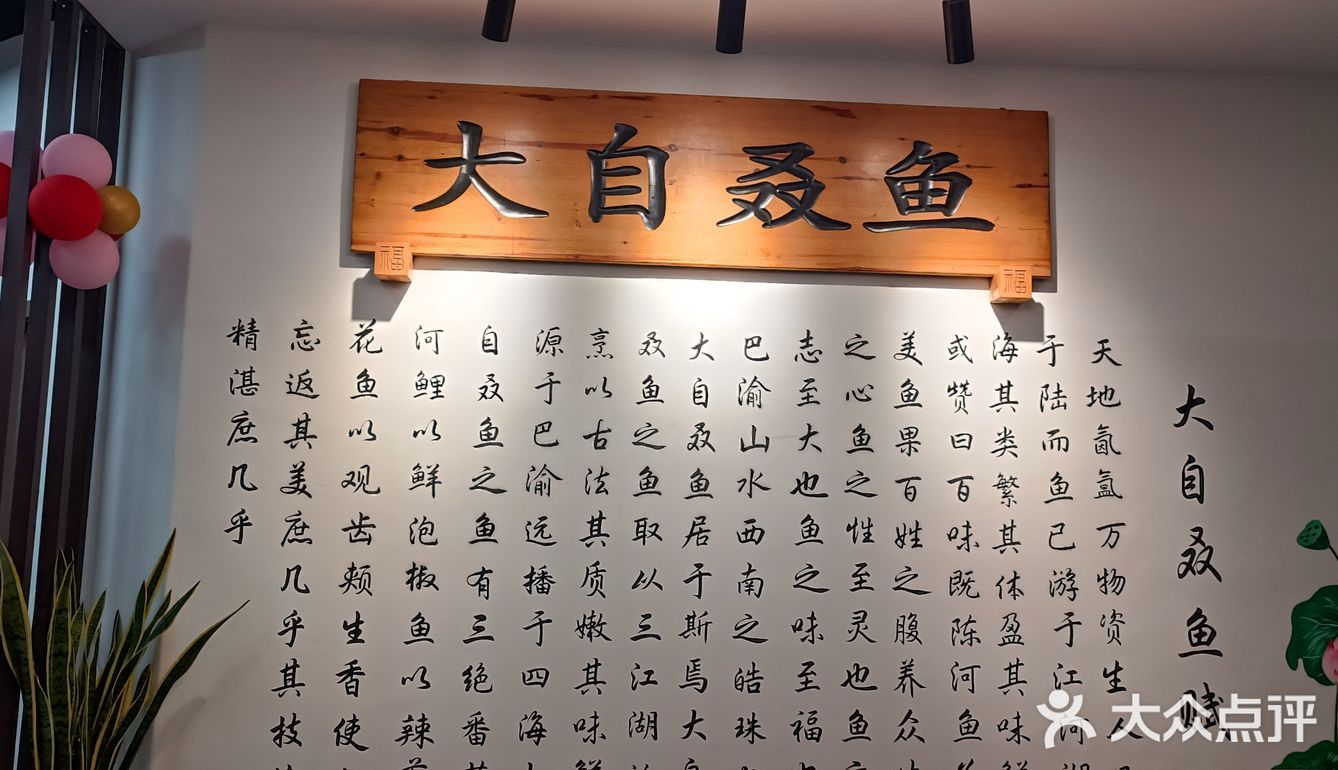 大自叒鱼
福
福
大自叒鱼赋
天地氤氲万物资生人
于陆而鱼已游于江河
海其类繁其体盈其味鲜
或赞曰百味既陈河鱼
美鱼果百姓之腹养众
之心鱼之性至灵也鱼
志至大也鱼之味至福
巴渝山水西南之皓珠
大自叒鱼居于斯焉大
叒鱼之鱼取从三江湖
烹以古法其质嫩其味鲜
源于巴渝远播于四海
自叒鱼之鱼有三绝番
河鲤以鲜泡椒鱼以辣
花鱼以观齿颊生香使
忘返其美庶几乎其技
精湛庶几乎
大众点评